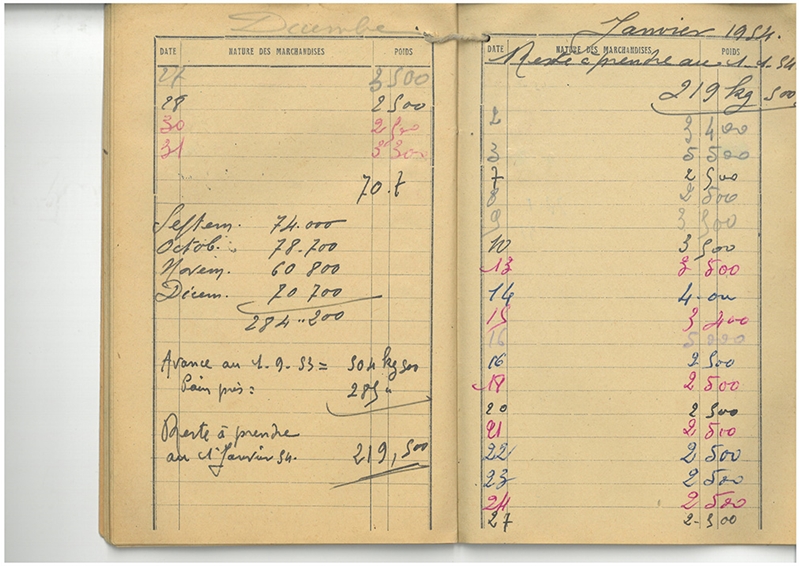 Décembre.
DATE NATURE DES MARCHANDISES POIDS
27 3 500
28 2 500
30 2 500
31 3 300
70.7
Septem. 74.000
Octob. 78.700
Novem. 60 800
Décem. 70 700
284.200
Avance au 1.9.53 = 504 kg 500
Pain pris = 285 "
Reste à prendre
au 1er Janvier 54. 219,500
Janvier 1954.
DATE NATURE DES MARCHANDISES POIDS
Reste à prendre au 1.1.54
219 kg 500
2 3 400
3 5 500
7 2 500
8 2 500
9 3 500
10 3 500
13 3 500
14 4.00
15 3 400
16 5 000
16 2 500
18 2 500
20 2 500
21 2 500
22 2 500
23 2 500
24 2 500
27 2.500